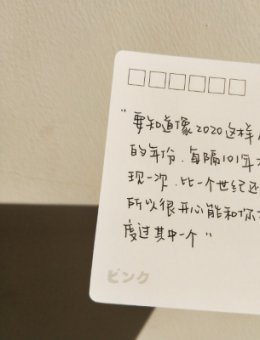 "要知道像2020这样
的年份,每隔101年才
现一次,比一个世纪还
所以很开心能和你
度过其中一个"
ピンク